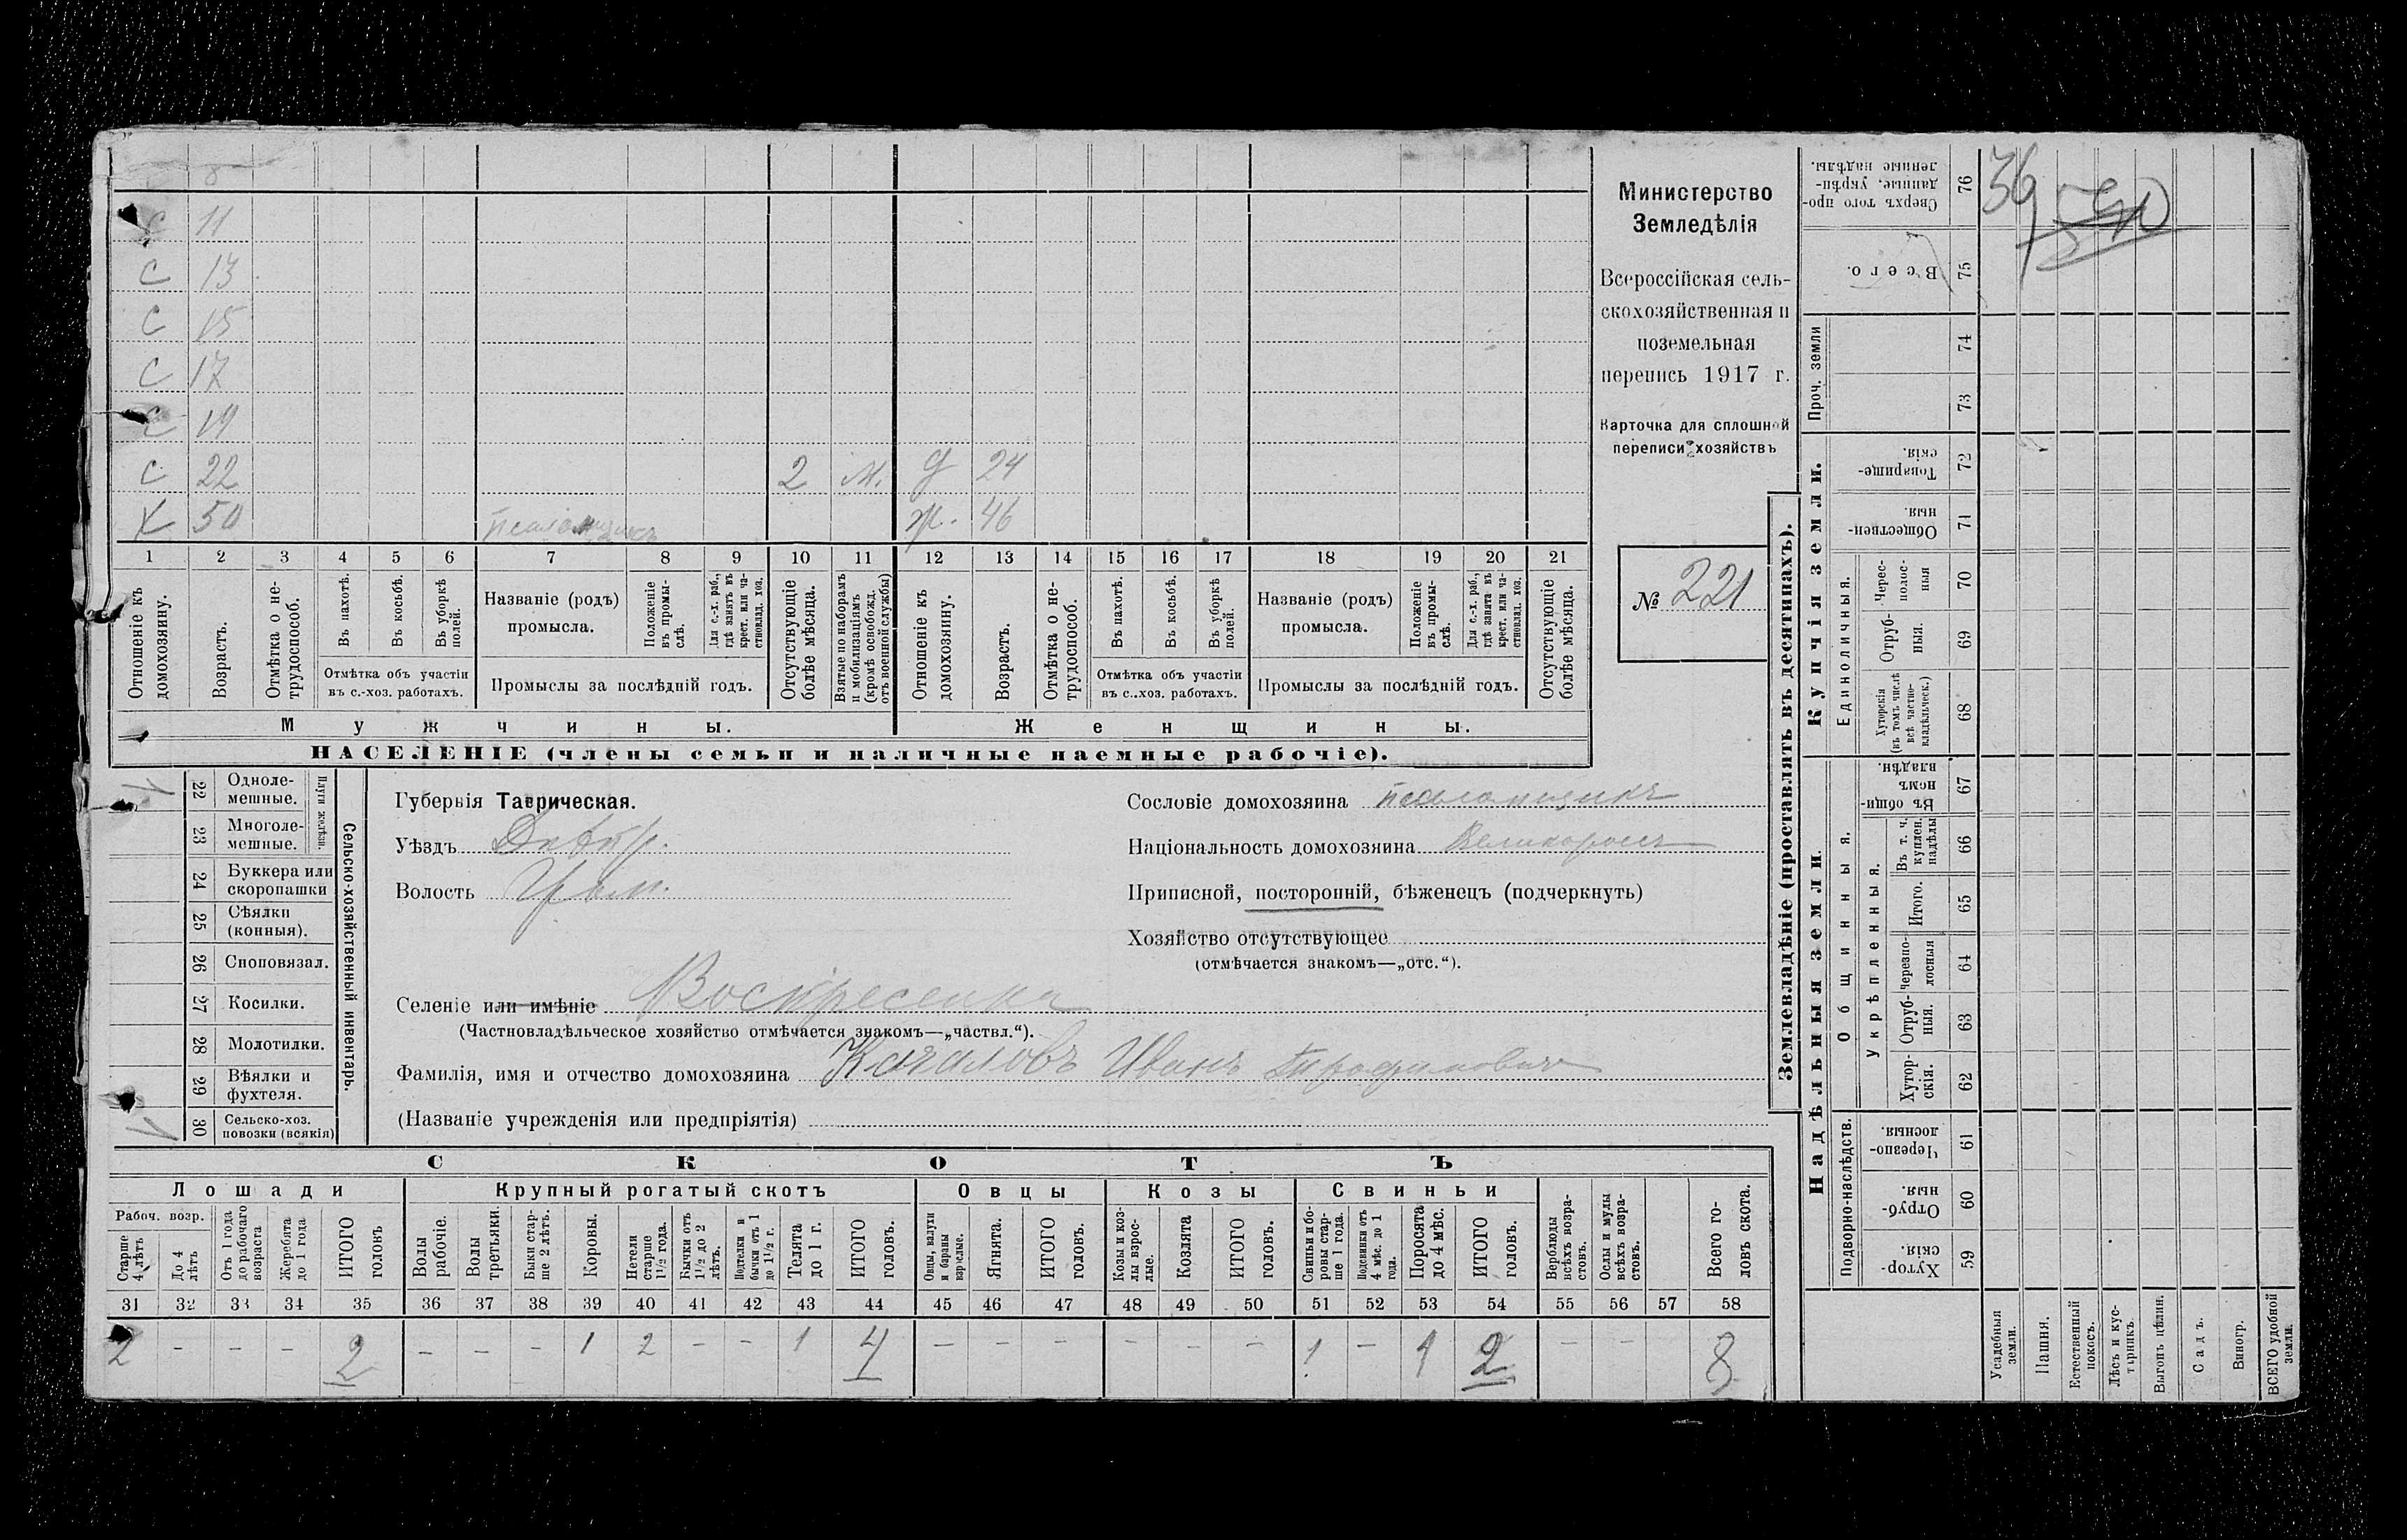 С 11
С 13
С 15
С 17
С 19
С 22 2 М. Д 24
Х 50 псаломщикъ Ж. 46
1 2 3 4 5 6 7 8 9 10 11 12 13 14 15 16 17 18 19 20 21
Отношеніе къ домохозяину.
Возрастъ.
Отмѣтка о не-трудоспособ.
Въ пахотѣ.
Въ косьбѣ.
Въ уборкѣ полей.
Отмѣтка объ участіи въ с.-хоз. работахъ.
Названіе (родъ) промысла.
Положеніе въ промы-слѣ.
Для с.-х. раб., гдѣ занятъ въ крест. или ча-стновлад. хоз.
Промыслы за послѣдній годъ.
Отсутствующіе болѣе мѣсяца.
Взятые по наборамъ и мобилизаціямъ (кромѣ освобожд. отъ военной службы)
Отношеніе къ домохозяину.
Возрастъ.
Отмѣтка о не-трудоспособ.
Въ пахотѣ.
Въ косьбѣ.
Въ уборкѣ полей.
Отмѣтка объ участіи въ с..хоз. работахъ.
Названіе (родъ) промысла.
Положеніе въ промы-слѣ.
Для с.-х. раб., гдѣ занята въ крест. или ча-стновлад. хоз.
Промыслы за послѣдній годъ.
Отсутствующіе болѣе мѣсяца.
Мужчины.
Женщины.
НАСЕЛЕНІЕ (члены семьи и наличные наемные рабочіе).
Министерство
Земледѣлія
Всероссійская сель-
скохозяйственная и
поземельная
перепись 1917 г.
Карточка для сплошной
переписи хозяйствъ
№ 221
22 Одноле-мешные.
23 Многоле-мешные.
Плуги желѣзн.
24 Буккера или скоропашки
25 Сѣялки (конныя).
26 Сноповязал.
27 Косилки.
28 Молотилки.
29 Вѣялки и фухтеля.
30 Сельско-хоз. повозки (всякія)
Сельско-хозяйственный инвентарь.
Губернія Таврическая.
Уѣздъ Днѣпр.
Волость
Сословіе домохозяина псаломщикъ
Національность домохозяина Великороссъ
Приписной, посторонній, бѣженецъ (подчеркнуть)
Хозяйство отсутствующее
(отмѣчается знакомъ—„отс.“).
Селеніе или имѣніе Воскресенка
(Частновладѣльческое хозяйство отмѣчается знакомъ—„частвл.“).
Фамилія, имя и отчество домохозяина Качаловъ Иванъ
(Названіе учрежденія или предпріятія)
СКОТЪ
Лошади Крупный рогатый скотъ Овцы Козы Свиньи
Рабоч. возр.
Старше 4 лѣтъ
До 4 лѣтъ
Отъ 1 года до рабочаго возраста
Жеребята до 1 года
ИТОГО головъ
Волы рабочіе.
Волы третьяки.
Быки стар-ше 2 лѣтъ.
Коровы.
Нетели старше 1½ года.
Бычки отъ 1½ до 2 лѣтъ.
Подтелки и бычки отъ 1 до 1½ г.
Телята до 1 г.
ИТОГО головъ.
Овцы, валухи и бараны взрослые.
Ягнята.
ИТОГО головъ.
Козы и коз-лы взрос-лые.
Козлята
ИТОГО головъ.
Свиньи и бо-ровы стар-ше 1 года.
Подсвинки отъ 4 мѣс. до 1 года.
Поросята до 4 мѣс.
ИТОГО головъ.
Верблюды всѣхъ возра-стовъ.
Ослы и мулы всѣхъ возра-стовъ.
Всего го-ловъ скота.
31 32 33 34 35 36 37 38 39 40 41 42 43 44 45 46 47 48 49 50 51 52 53 54 55 56 57 58
2 – – – 2 – – – 1 2 – – 1 4 – – – – – – 1 – 1 2 – – 8
Землевладѣніе (проставлять въ десятинахъ).
Купчія земли.
Надѣльныя земли.
Сверхъ того про-данные, укрѣп-ленные надѣлы. 76
36
Всего. 75
Проч. земли
74
73
Товарище-скія. 72
Обществен-ныя. 71
Единоличныя.
Черес-полос-ныя 70
Отруб-ныя. 69
Хуторскія (въ томъ числѣ всѣ частно-владѣльческ.) 68
Общинныя.
Въ общин-номъ владѣн. 67
Укрѣпленныя.
Въ т. ч. куплен. надѣлы 66
Итого. 65
Черезпо-лосныя 64
Отруб-ныя. 63
Хутор-скія. 62
Подворно-наслѣдств.
Черезпо-лосныя. 61
Отруб-ныя. 60
Хутор-скія. 59
Усадебныя земли.
Пашня.
Естественный покосъ.
Лѣсъ и кус-тарникъ.
Выгонъ цѣлин.
Садъ.
Виногр.
ВСЕГО удобной земли.